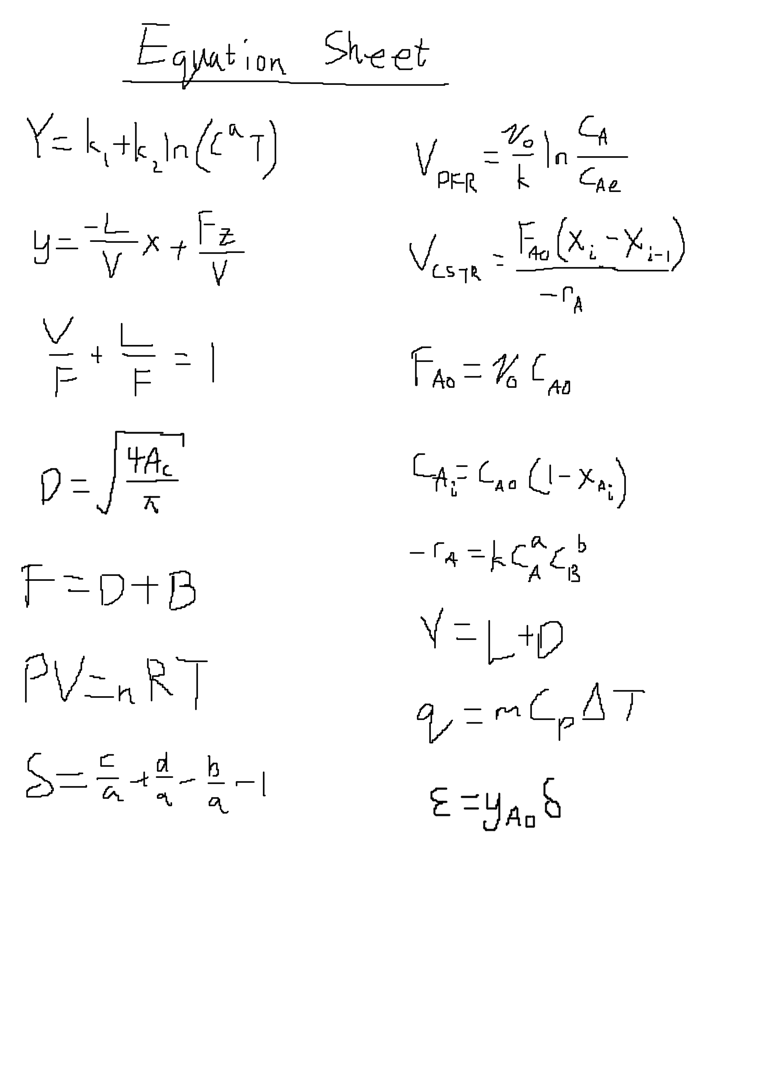 Equation Sheet
Y = k₁ + k₂ ln(Cᵃ T)
y = -L/V x + Fz/V
V/F + L/F = 1
D = √(4A_c/π)
F = D + B
PV = nRT
δ = c/a + d/a - b/a - 1
V_PFR = v₀/k ln C_A/C_Ae
V_CSTR = F_A0(X_i - X_{i-1})/-r_A
F_A0 = v₀ C_A0
C_Ai = C_A0 (1 - X_Ai)
-r_A = k C_A^a C_B^b
V = L + D
q = m C_p ΔT
ε = y_A0 δ